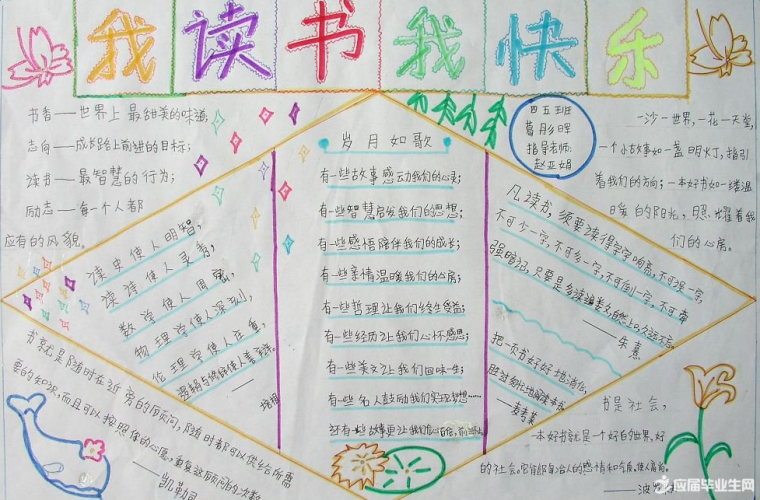 我读书我快乐
书香——世界上最甜美的味道;
志向——成长路上前进的目标;
读书——最智慧的行为;
励志——每一个人都
应有的风貌。
读史使人明智,
读诗使人灵秀,
数学使人周密,
物理学使人深刻,
伦理学使人庄重,
逻辑与修辞使人善辩。
——培根
书就是随时在近旁的顾问,随时都可以供给你所需
要的知识,而且可以按照你的心愿,重复这顾问的次数
——凯勒司
岁月如歌
有一些故事感动我们的心灵;
有一些智慧启发我们的思想;
有一些感悟陪伴我们的成长;
有一些亲情温暖我们的心房;
有一些哲理让我们终生受益;
有一些经历让我们心怀感恩;
有一些美文让我们回味一生;
有一些名人鼓励我们实现梦想……
还有一些故事更让我们
四五班
葛彤晖
指导老师:
赵亚娟
一沙一世界,一花一天堂,
一个小故事如一盏明灯,指引
着我们的方向;一本好书如一缕温
暖的阳光,照耀着我
们的心房。
凡读书,须要读得字字响亮,不可误一字,
不可少一字,不可多一字,不可倒一字,不可牵
强暗记,只要是多诵遍数,自然上口,久远不忘。
——朱熹
把一页书好好地消化,
胜过匆忙地阅读一本书。
——麦考莱
书是社会,
一本好书就是一个好的世界,好
的社会。它能陶冶人的感情和气质,使人高尚。
应届毕业生网